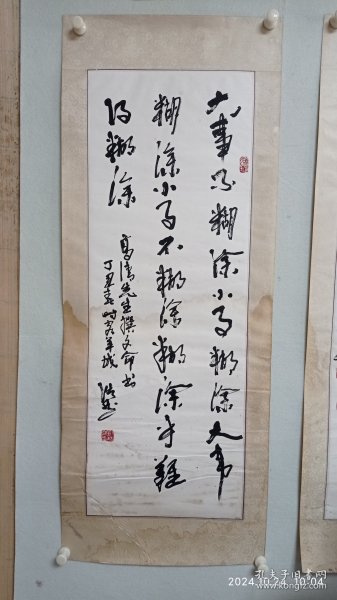 大事不糊涂小事糊涂大事
糊涂小事不糊涂糊涂才难
得糊涂
先生撰文命书
丁丑春时客羊城
2024.10.24 10:04
孔夫子旧书网